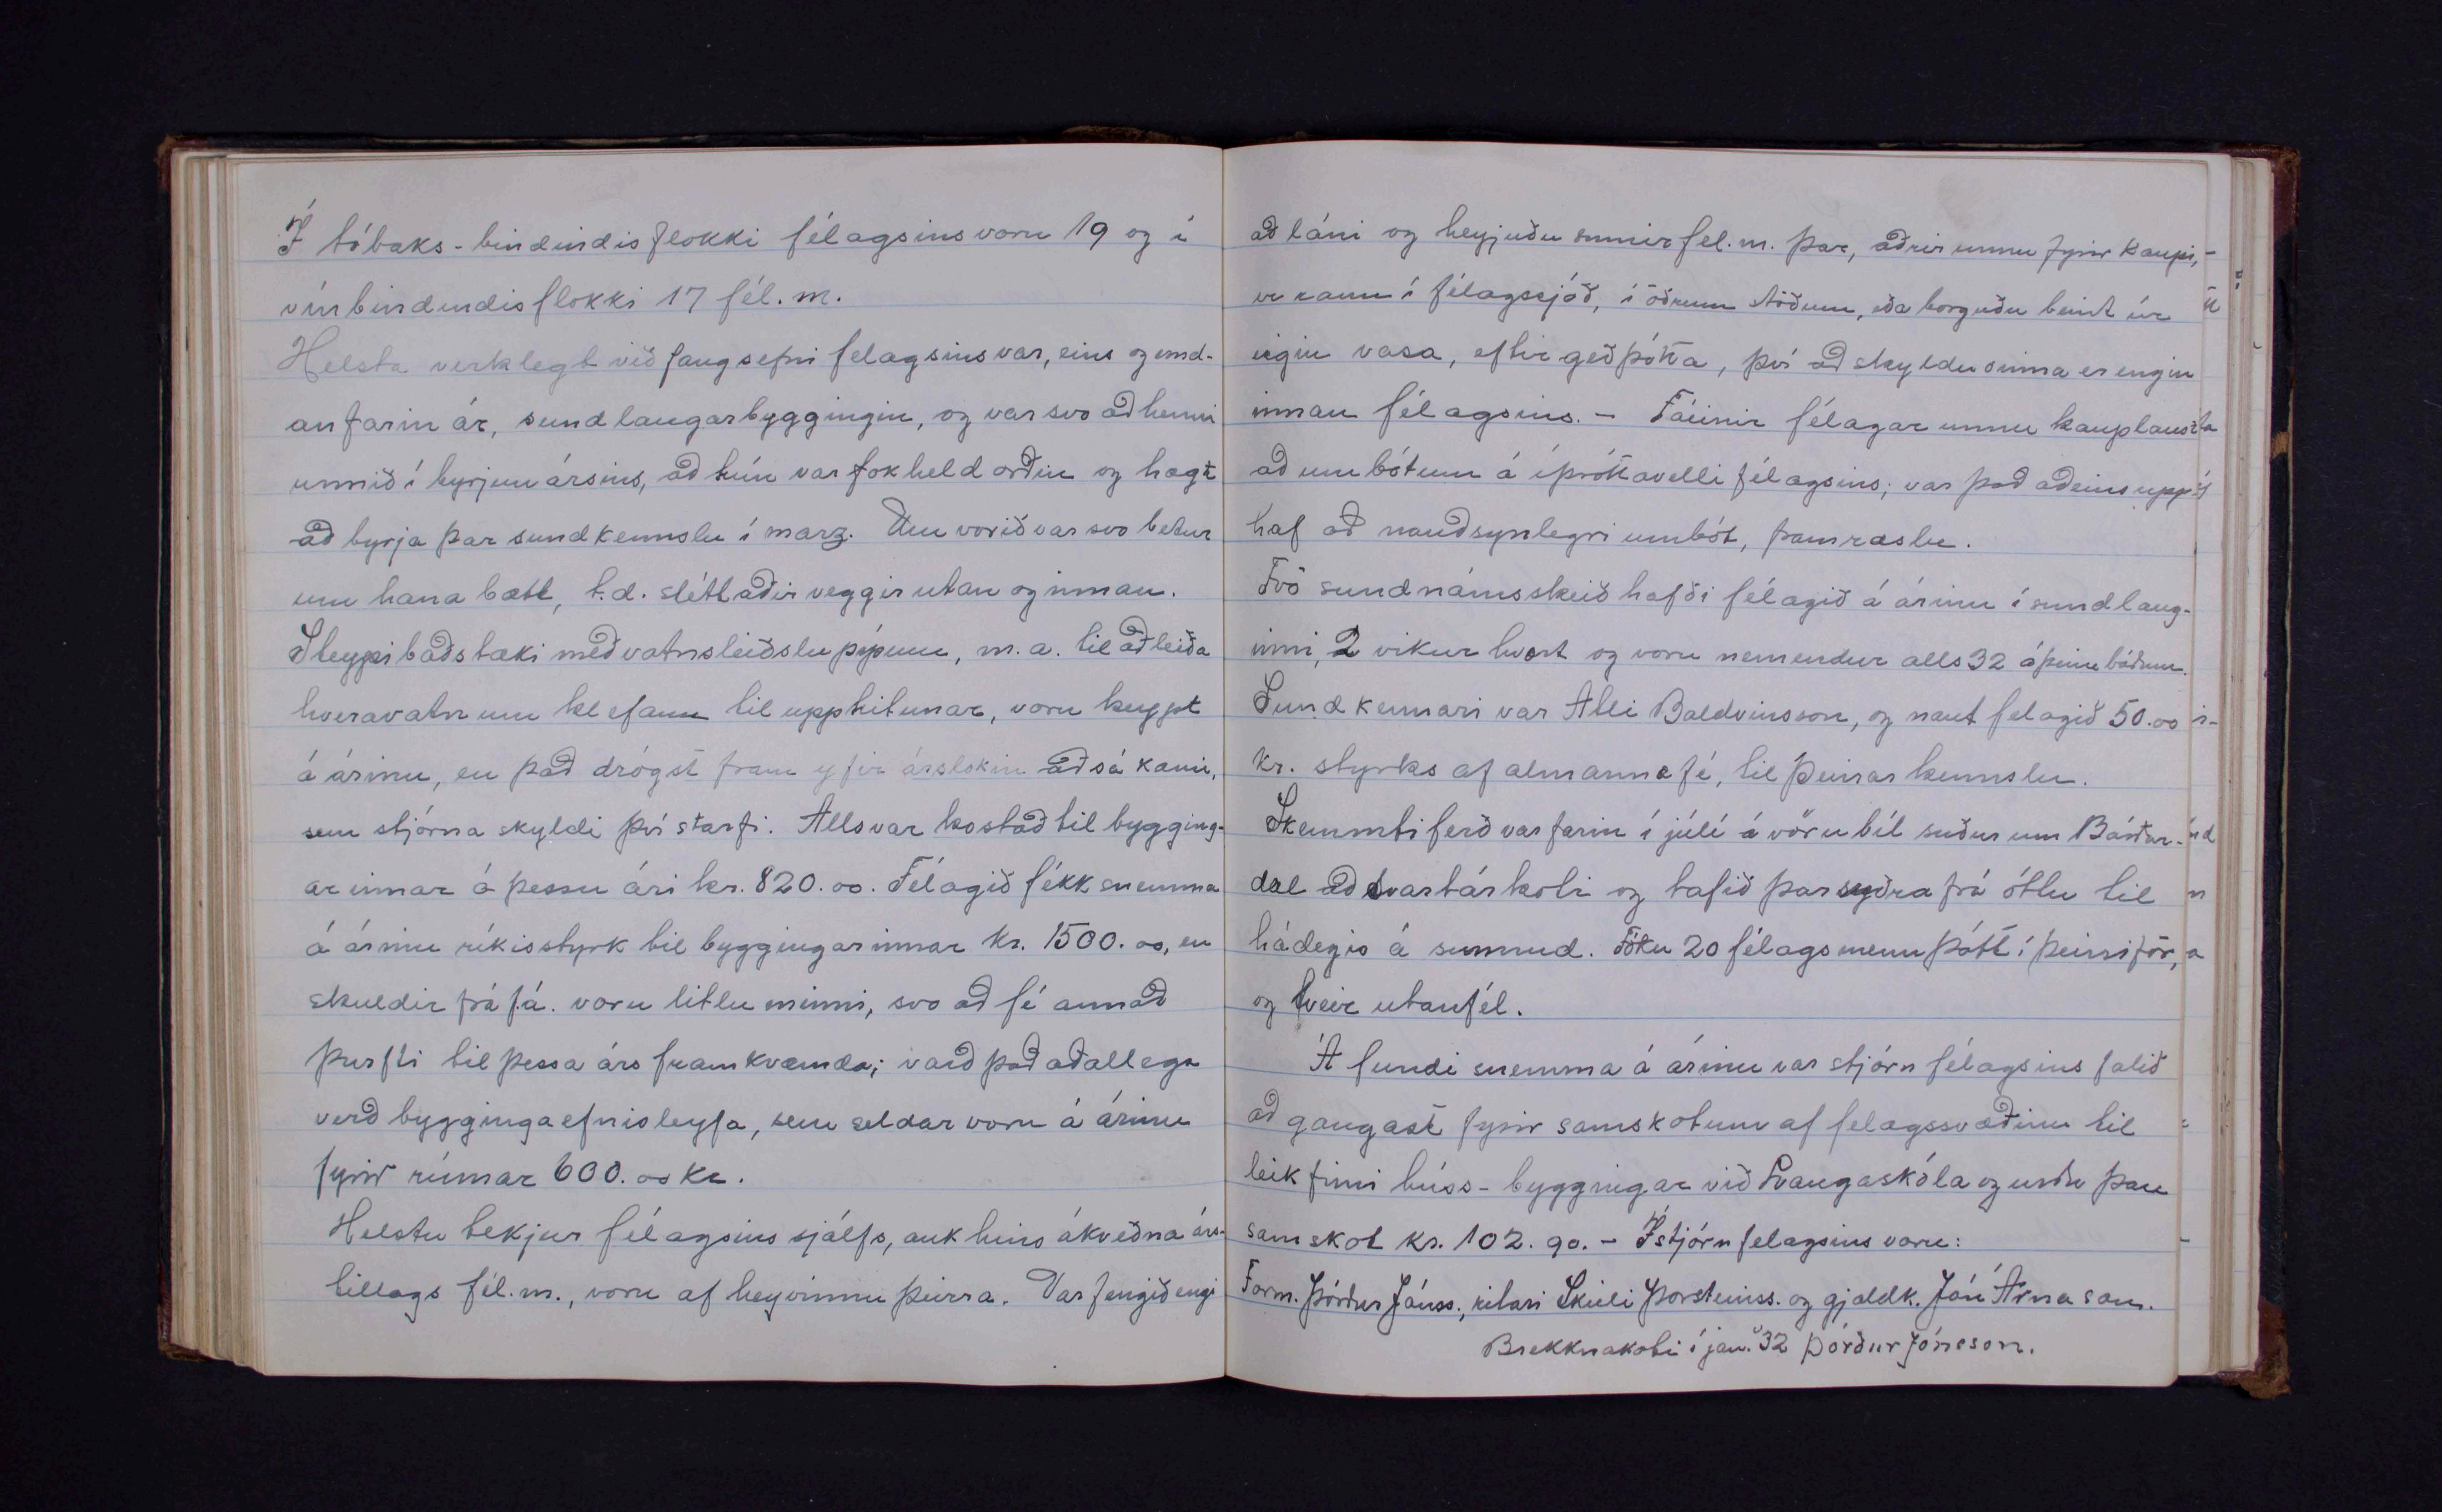 Í tóbaks-bindindisflokki félagsins voru 19 og í
vínbindindisflokki 17 fél.m.
Helsta verklegt viðfangsefni felagsins var, eins og und-
anfarin ár, sundlaugarbyggingin, og var svo að henni
unnið í byrjun ársins, að hún var fokheld orðin og hægt
að byrja þar sundkennslu í marz. Um vorið var svo betur
um hana bætt, t.d. sléttaðir veggir utan og innan.
Steypibaðstæki með vatnsleiðslupípum, m.a. til að leiða
hveravatn um klefann til upphitunar, voru keypt
á árinu, en það drógst fram yfir árslokin að sá kæmi,
sem stjórna skyldi því starfi. Alls var kostað til bygging-
arinnar á þessu ári kr. 820.oo. Félagið fékk snemma
á árinu ríkisstyrk til byggingarinnar kr. 1500.oo, en
skuldir frá f.á. voru litlu minni, svo að fé annað
þurfti til þessa árs framkvæmda; varð það aðallega
verð byggingaefnisleyfa, sem seldar voru á árinu
fyrir rúmar 600.oo kr.
Helstu tekjur félagsins sjálfs, auk hins ákveðna árs-
tillags fél.m., voru af heyvinnu þeirra. Var fengið engi
að láni og heyjuðu sumir fel.m. þar, aðrir unnu fyrir kaupi,
er rann í félagssjóð, í öðrum stöðum, eða borguðu beint úr
eigin vasa, eftir geðþótta, því að skylduvinna er engin
innan félagsins. - Fáeinir félagar unnu kauplaust
að umbótum á íþróttavelli félagsins; var það aðeins upp-
haf að nauðsynlegri umbót, framræslu.
Tvö sundnámsskeið hafði félagið á árinu í sundlaug-
inni, 2 vikur hvort og voru nemendur alls 32 á þeim báðum.
Sundkennari var Atli Baldvinsson, og naut felagið 50.oo
kr. styrks af almannafé, til þeirrar kennslu.
Skemmtiferð var farin í júlí á vörubíl suður um Bárðar-
dal að Svartárkoti og tafið þar syðra frá óttu til
hádegis á sunnud. Tóku 20 félagsmenn þátt í þeirri för,
og tveir utanfél.
Á fundi snemma á árinu var stjórn félagsins falið
að gangast fyrir samskotum af felagssvæðinu til
leikfimihúss-byggingar við Laugaskóla og urðu þau
samskot kr. 102.90. - Í stjórn felagsins voru:
Form. Þórður Jónss., ritari Skúli Þorsteinss. og gjaldk. Jón Árnason.
Brekknakoti í jan. '32 Þórður Jónsson.